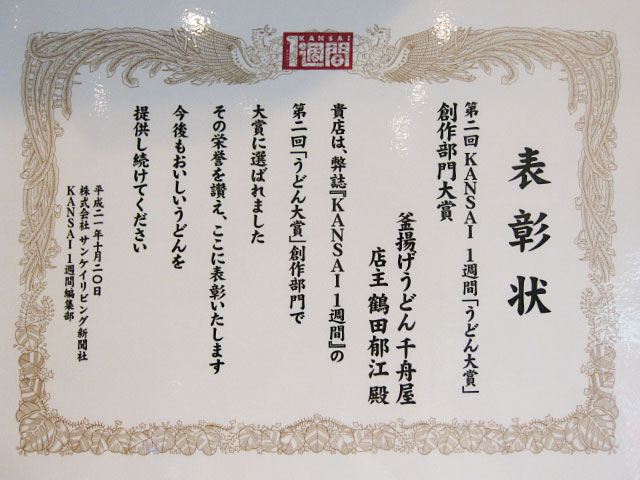 KANSAI
1週間
表彰状
第二回 KANSAI 1週間「うどん大賞」
創作部門大賞
釜揚げうどん 千舟屋
店主 鶴田郁江 殿
貴店は、弊誌『KANSAI1週間』の
第二回「うどん大賞」創作部門で
大賞に選ばれました
その栄誉を讃え、ここに表彰いたします
今後もおいしいうどんを
提供し続けてください
平成二一年十月二〇日
株式会社 サンケイリビング新聞社
KANSAI1週間編集部